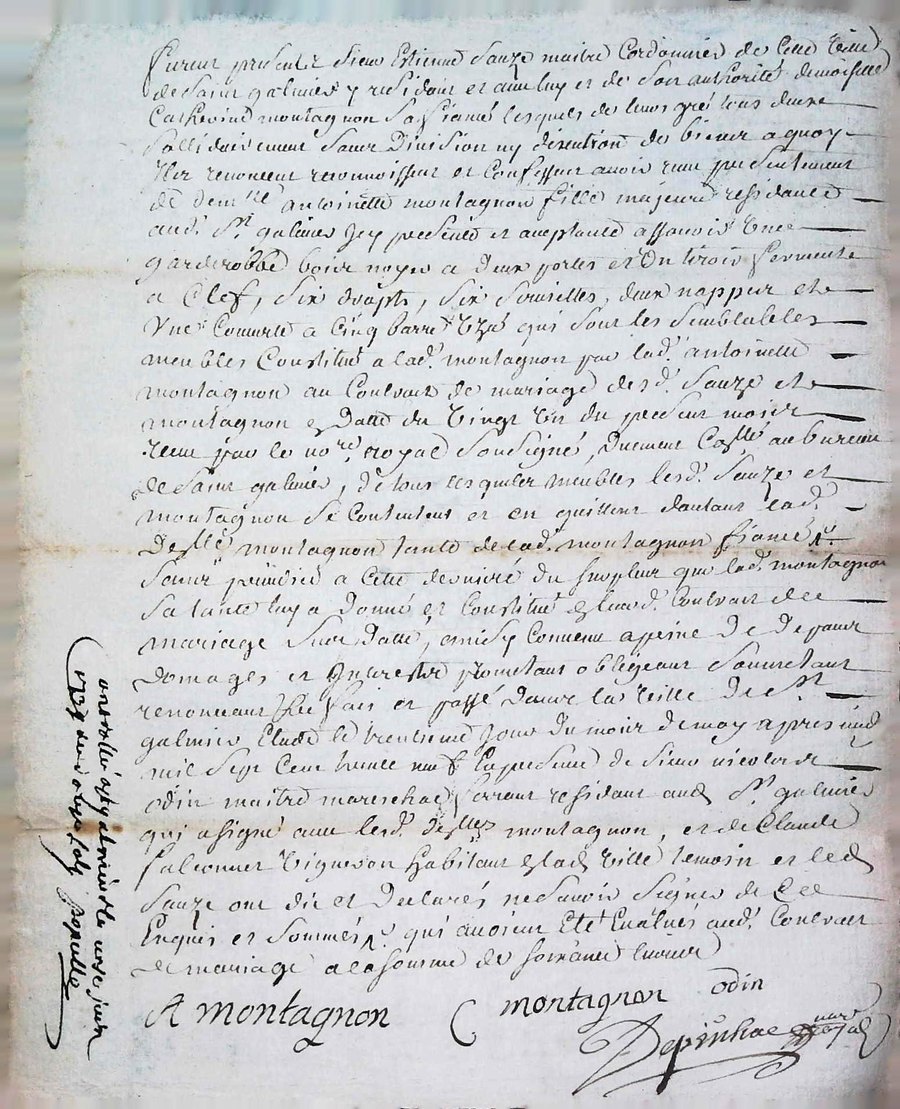 Furent presents Sieur Estienne Sauze maitre Cordonnier de Cette Ville
de Saint galmier y residant et avec luy et de Son authorité demoiselle
Catherine montagnon Sa fiancé lesquels de leurs gré tous deux
Sollidairement Sans Division ny discution de biens a quoy
Ils renoncent reconnoissent et Confessent avoir reçu presentement
de dem.lle antoinette montagnon fille majeure residante
aud. St. galmier Icy presente et acceptante assavoir Une
garderobbe bois noyer a deux portes et Un tiroir fermente
a Clef, Six draps, Six Serviettes, deux nappes et
Une Couverte a Cinq barres qui Sont les Semblables
meubles Constitué a lad. montagnon par lad. antoinette
montagnon au Contrat de mariage desd. Sauze et
montagnon en Datte du Vingt Un du present mois
reçu par le no.re royal Soussigné, Duement Con.llé au bureau
de Saint galmier, de tous lesquels meubles lesd. Sauze et
montagnon Se Contentent et en quittent d'autant lad.
De.lle montagnon tante de lad. montagnon fiancé
Sans prejudice a Cette derniere du Surplus que lad. montagnon
Sa tante luy a Donné et Constitué aud. Contrat de
mariage Sus Datté, ainsy Convenu a peine de Depans
Domages et Interests promettant obligeant Soumettant
renonceant fait et passé dans la Ville de St
galmier Etude le trentieme Jour du mois de may apres midy
mil Sept Cent trente neuf En presence de Sieur nicolas
odin maitre mareschal ferrant residant aud. St. galmier
qui a signé avec lesd. De.lles montagnon, et de Claude
falconnet Vigneron habitant lad. Ville temoin et led.
Sauze ont dit et Declarés ne Savoir Signer de Ce
Enquis et Sommés qui avoient Eté Evalués aud. Contrat
de mariage a la Somme de Soixante livres
A montagnon C montagnon odin
no.re royal
a St galmier le unze juin
1739